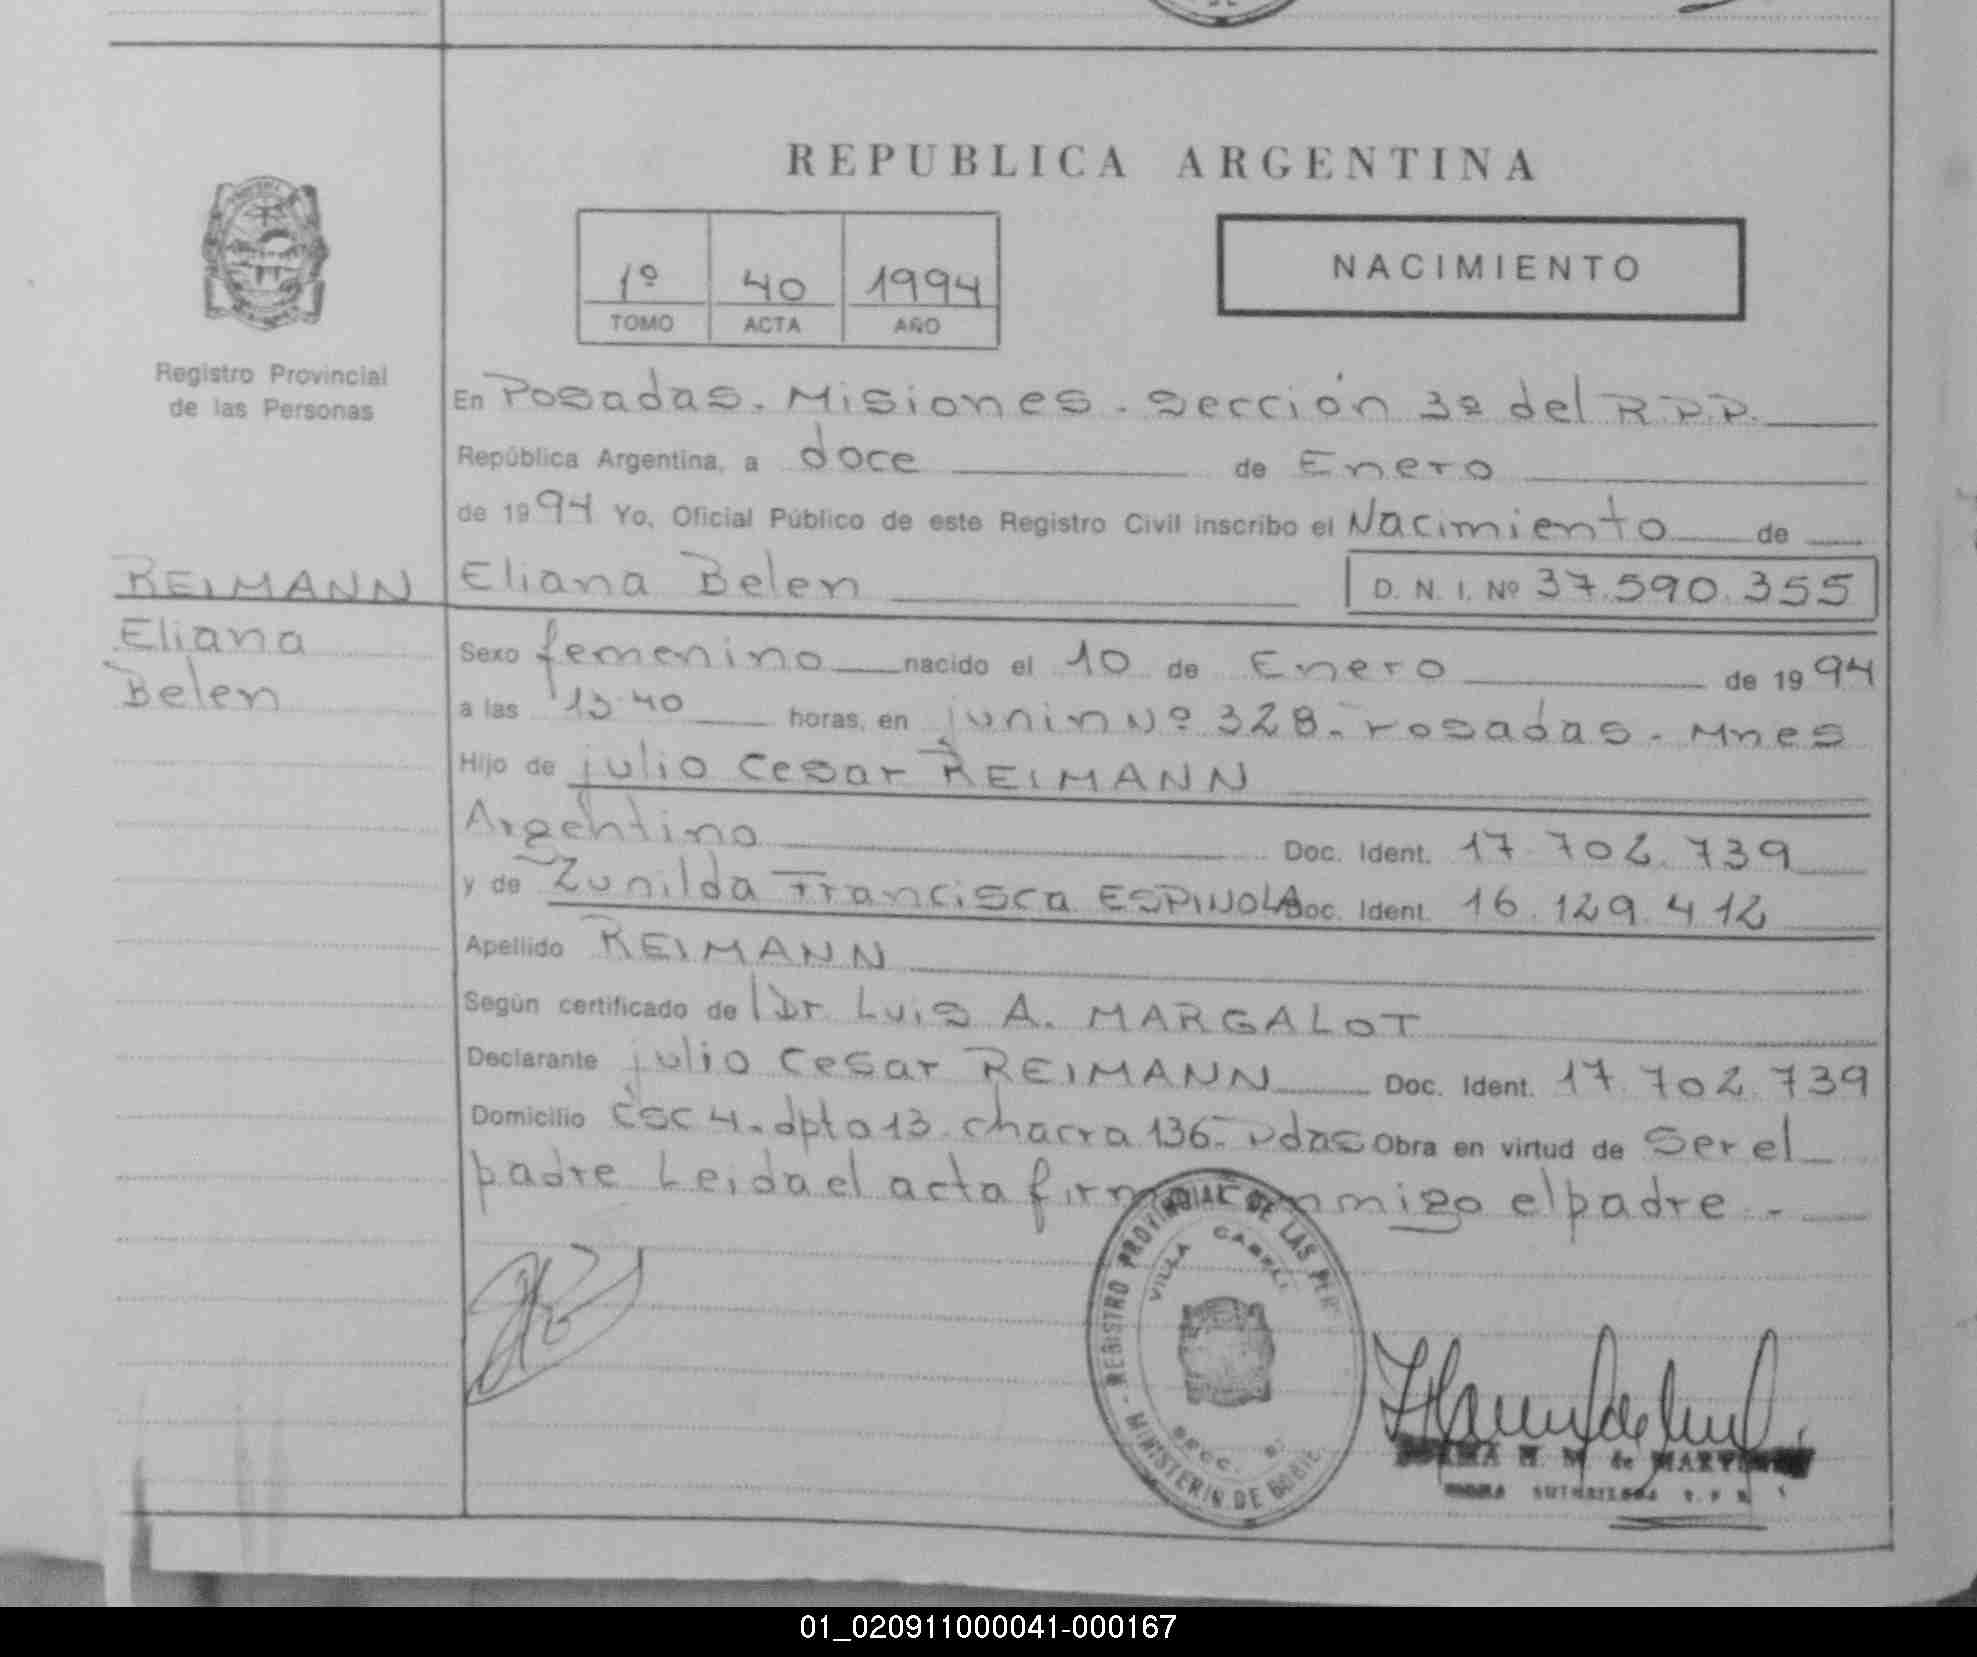 REPUBLICA ARGENTINA
1º 40 1994
TOMO ACTA AÑO
NACIMIENTO
Registro Provincial
de las Personas
En Posadas. Misiones. Sección 3ª del R.P.P.
República Argentina, a doce de Enero
de 1994 Yo, Oficial Público de este Registro Civil inscribo el Nacimiento de
REIMANN Eliana Belen D. N. I. Nº 37.590.355
Eliana
Belen
Sexo femenino nacido el 10 de Enero de 1994
a las 13.40 horas, en junin Nº 328. Posadas. Mnes
Hijo de julio Cesar REIMANN
Argentino Doc. Ident. 17.702.739
y de Zunilda Francisca ESPINOLA Doc. Ident. 16.129.412
Apellido REIMANN
Según certificado de Dr Luis A. MARGALOT
Declarante julio Cesar REIMANN Doc. Ident. 17.702.739
Domicilio Esc 4. dpto 13. chacra 136. Pdas Obra en virtud de Ser el
padre Leida el acta firma conmigo el padre.-
REGISTRO PROVINCIAL DE LAS PER
VILLA CABELLO
SECC.
MINISTERIO DE GOBIE
M. M. de MARTINEZ
01_020911000041-000167